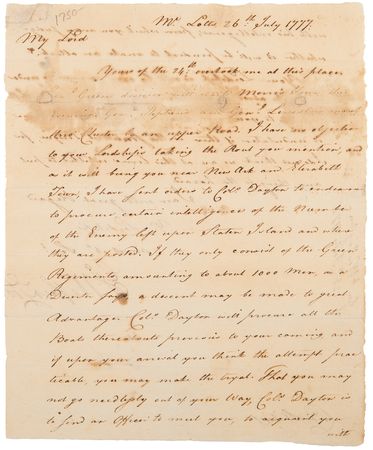 1780
Mr Lotts 26th July 1777.
My Lord
Yours of the 24th overtook me at this place
Green division will reach Morris Town this
evening Genl. Stephens and Genl. Lincolns
thro Chester by an upper Road. I have no objection
to your Lordships taking the Rout you mention, and
as it will bring you near New Ark and Elizabeth
Town, I have sent orders to Colo. Dayton to endeavor
to procure certain intelligence of the Number
of the Enemy left upon Staten Island and where
they are posted. If they only consist of the Green
Regiments amounting to about 1000 Men, as a
Deserter says, a descent may be made to great
Advantage. Colo. Dayton will procure all the
Boats thereabouts previous to your coming and
if upon your arrival you think the attempt prac
ticable, you may make the tryal. That you may
not go needlessly out of your Way, Colo. Dayton is
to send an Officer to meet you, to acquaint you
with